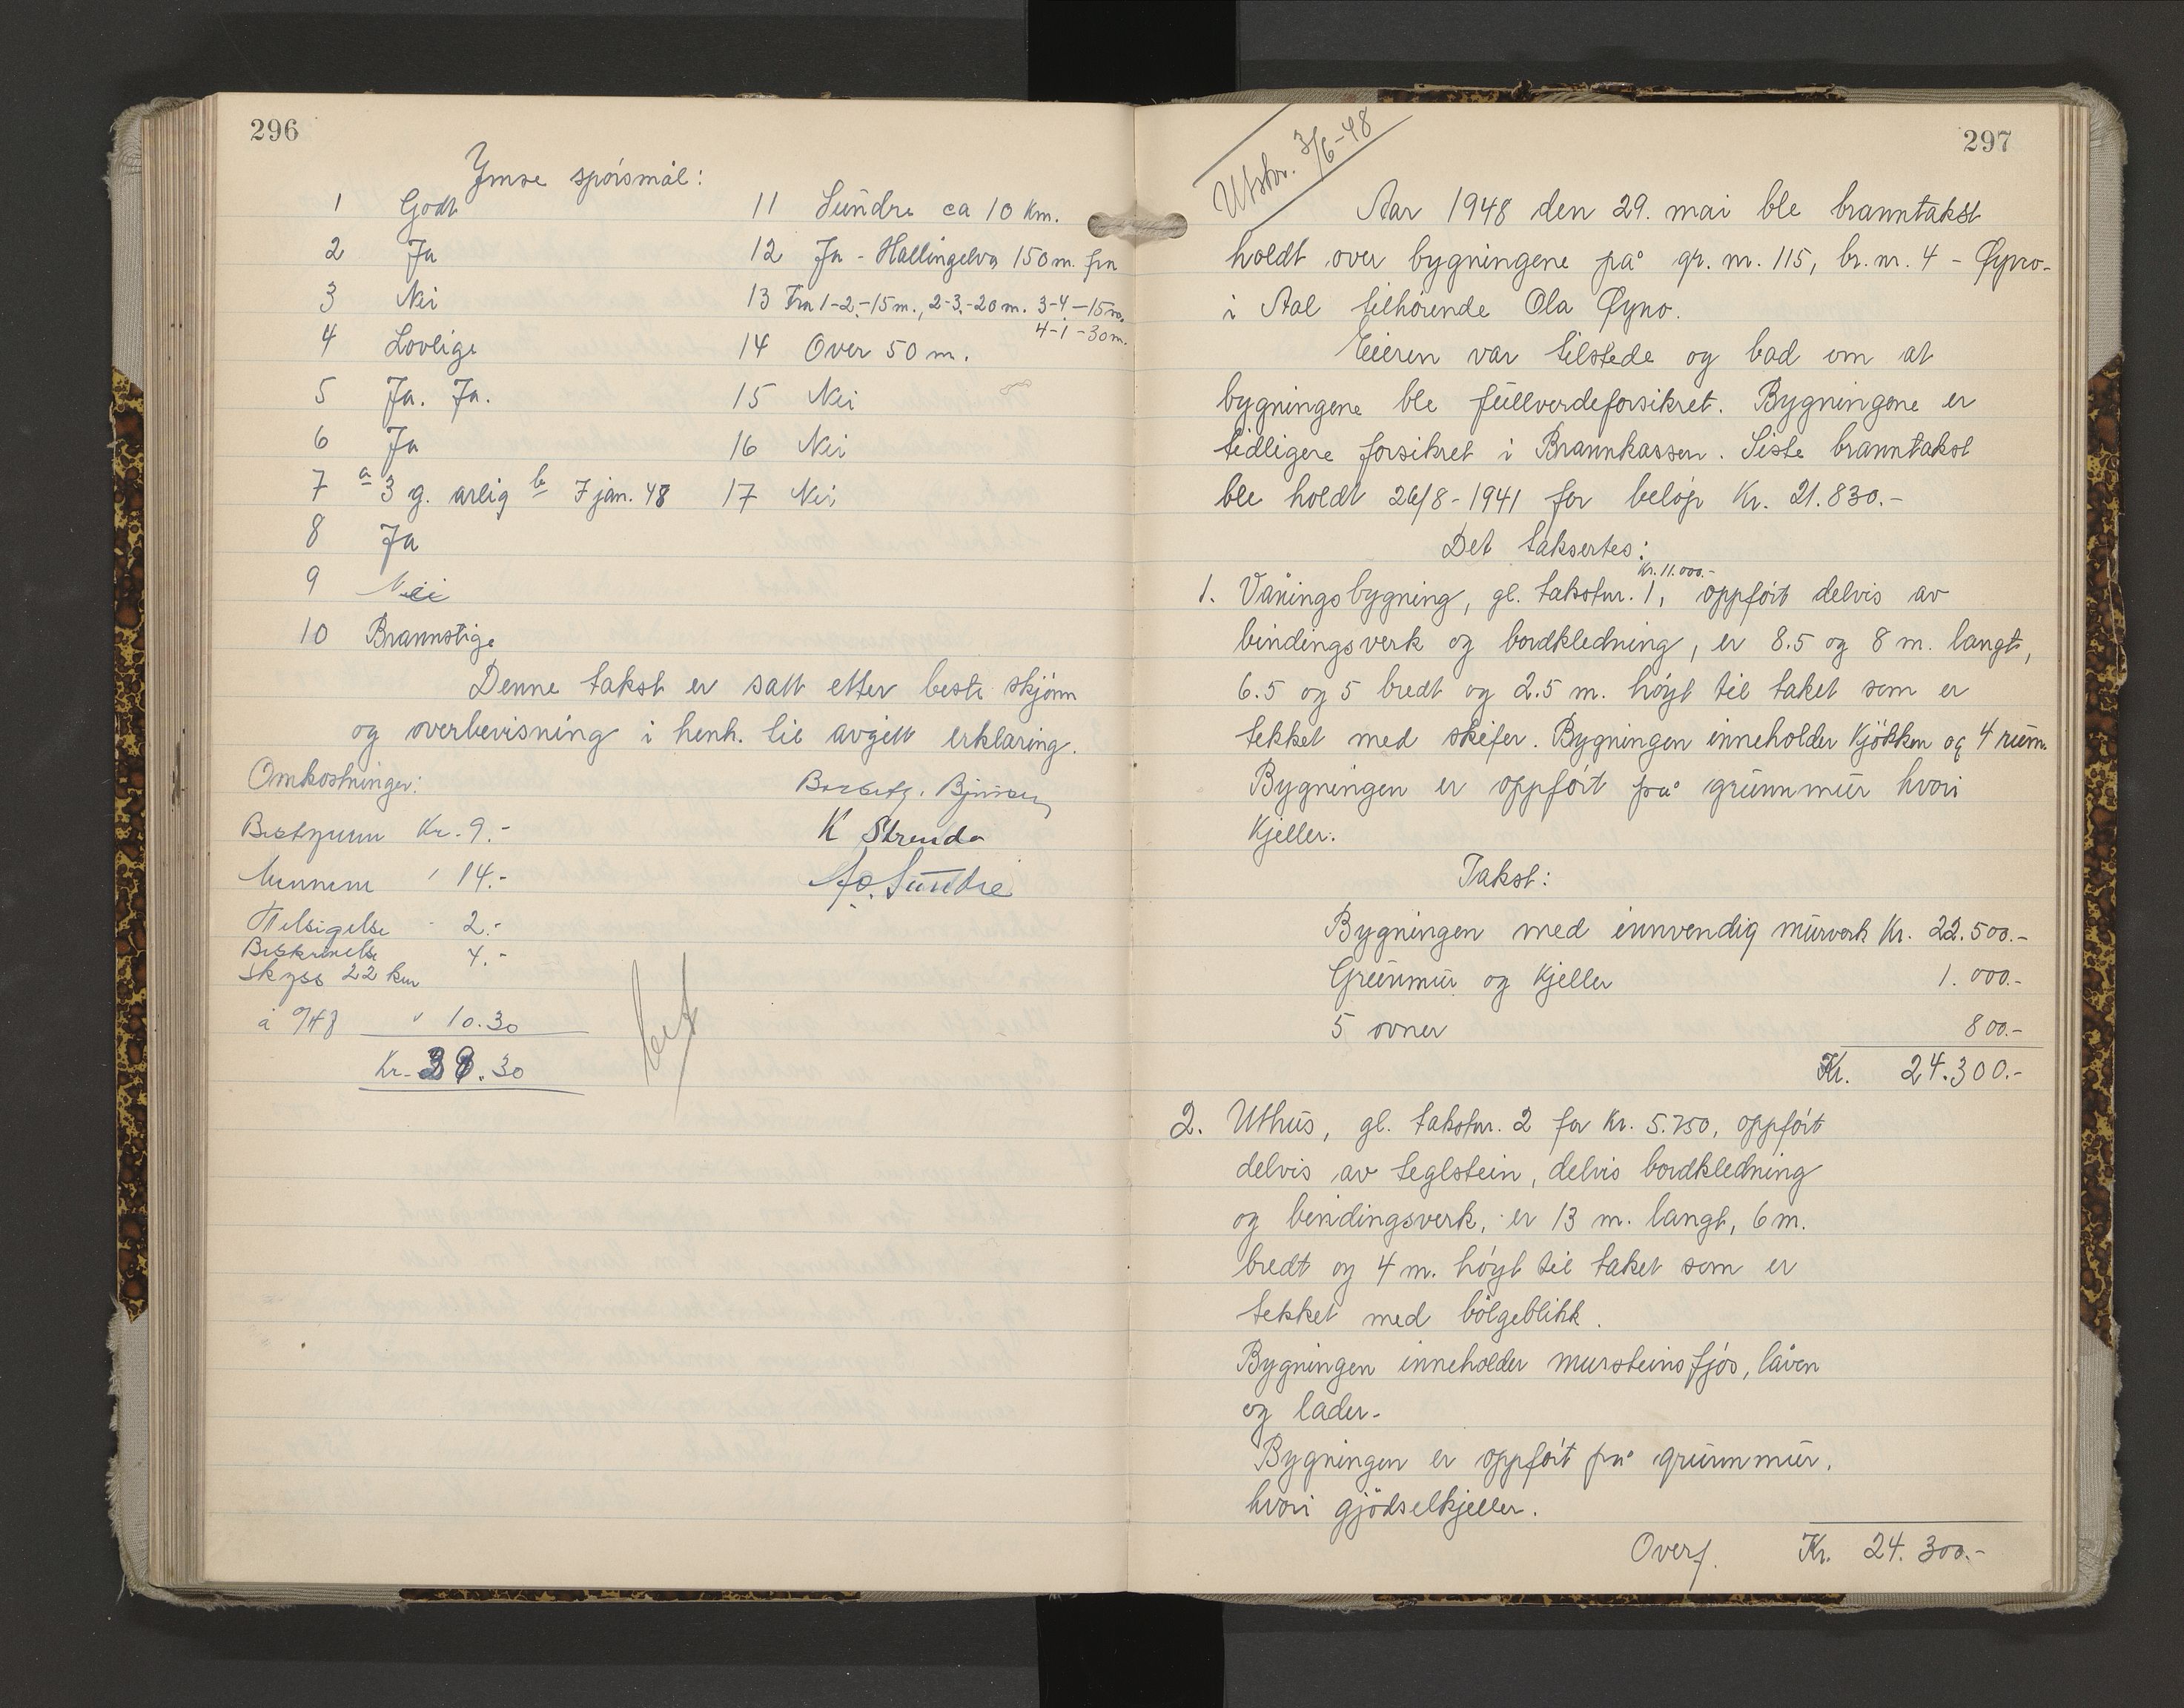 296
Ymse spörsmål:
1 Godt
2 Ja
3 Nei
4 Lovlige
5 Ja. Ja.
6 Ja
7 a 3 g. arlig b 7 jan. 48
8 Ja
9 Nei
10 Brannstige
11 Sundre ca 10 Km.
12 Ja - Hallingelva 150 m. fra
13 Fra 1-2.-15 m., 2-3.-20 m. 3-4.-15 m.
4-1-30 m.
14 Over 50 m.
15 Nei
16 Nei
17 Nei
Denne takst er satt etter beste skjönn
og overbevisning i henh. til avgitt erklæring.
Omkostninger:
Kr. 9.-
14.-
Tilsigelse - 2.-
Beskrivelse 4.-
Skyss 22 km
10.30
Kr. 39.30
K Strenda
Sundre
297
Utskr. 3/6-48
Aar 1948 den 29. mai ble branntakst
holdt over bygningene på gr. nr. 115, br. nr. 4 - Øyno-
i Aal tilhörende Ola Øyno.
Eieren var tilstede og bad om at
bygningene ble fullverdeforsikret. Bygningene er
tidligere forsikret i Brannkassen. Siste branntakst
ble holdt 26/8-1941 for belöp Kr. 21.830.-
Det taksertes:
Kr. 11.000.-
1. Våningsbygning, gl. takstnr. 1, oppfört delvis av
bindingsverk og bordkledning, er 8.5 og 8 m. langt,
6.5 og 5 bredt og 2.5 m. höyt til taket som er
tekket med skifer. Bygningen inneholder Kjökken og 4 rum.
Bygningen er oppfört på grunnmur hvori
Kjeller.
Takst:
Bygningen med innvendig murverk Kr. 22.500.-
Grunmur og Kjeller 1.000.-
5 ovner 800.-
Kr. 24.300.-
2. Uthus, gl. takstnr. 2 for Kr. 5.750, oppfört
delvis av teglstein, delvis bordkledning
og bindingsverk, er 13 m. langt, 6 m.
bredt og 4 m. höyt til taket som er
tekket med bölgeblikk.
Bygningen inneholder mursteinsfjös, låven
og lader.
Bygningen er oppfört på grunnmur,
hvori gjödselkjeller.
Overf. Kr. 24.300.-